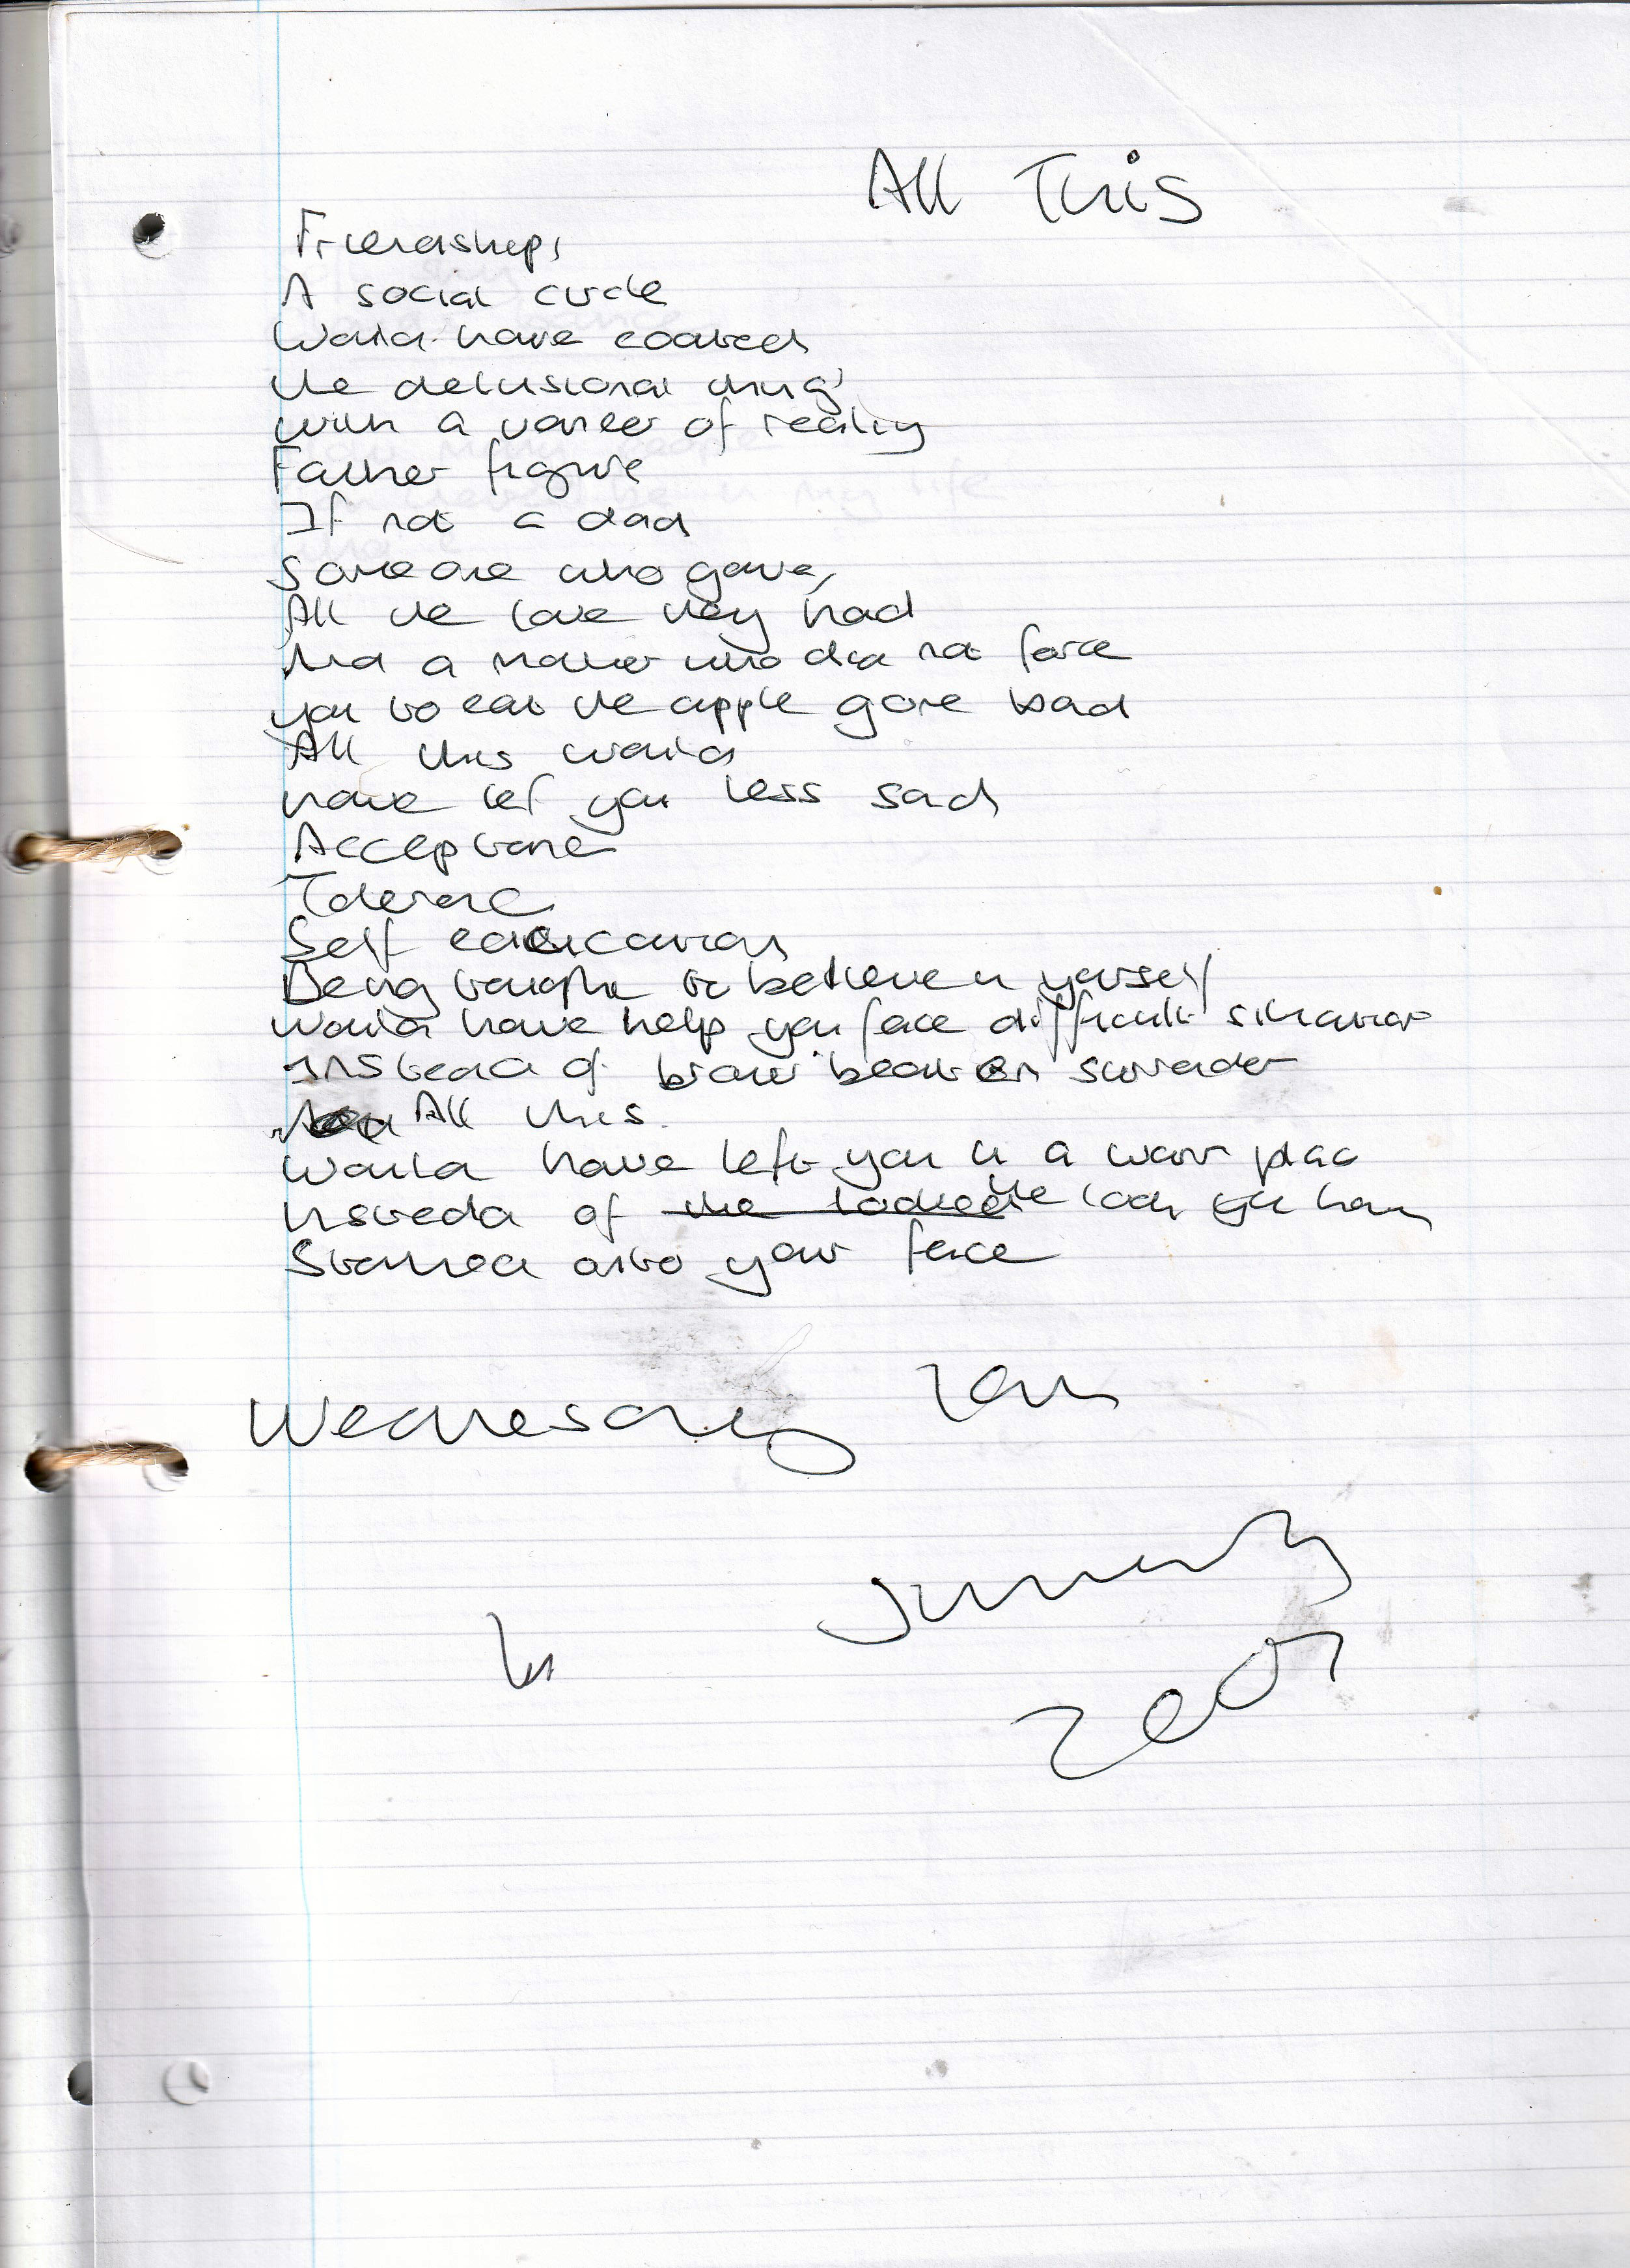 All This
Friendships
A social circle
Would have coated
the delusional drug
with a veneer of reality
Father figure
If not a dad
Someone who gave,
All the love they had
And a mother who did not force
you to eat the apple gone bad
All this would
have lef you less sad
Acceptance
Tolerance
Self education
Being taught to believe in yourself
Would have help you face difficult situation
Instead of brow beaten surrender
All this
Would have left you in a warm place
Insteda of the look you have
Stained onto your face
Wednesday
In
January